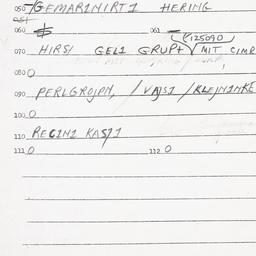 050 GEMARINIRTI HERING
051
060 061
(125090)
070 HIRSI GELI GRUPT MIT CIMR
080 0
090 PERLGROJPN, / VAJSI / KLEJNINKE
100 0
110 REGINI KASJI
111 0 112 0